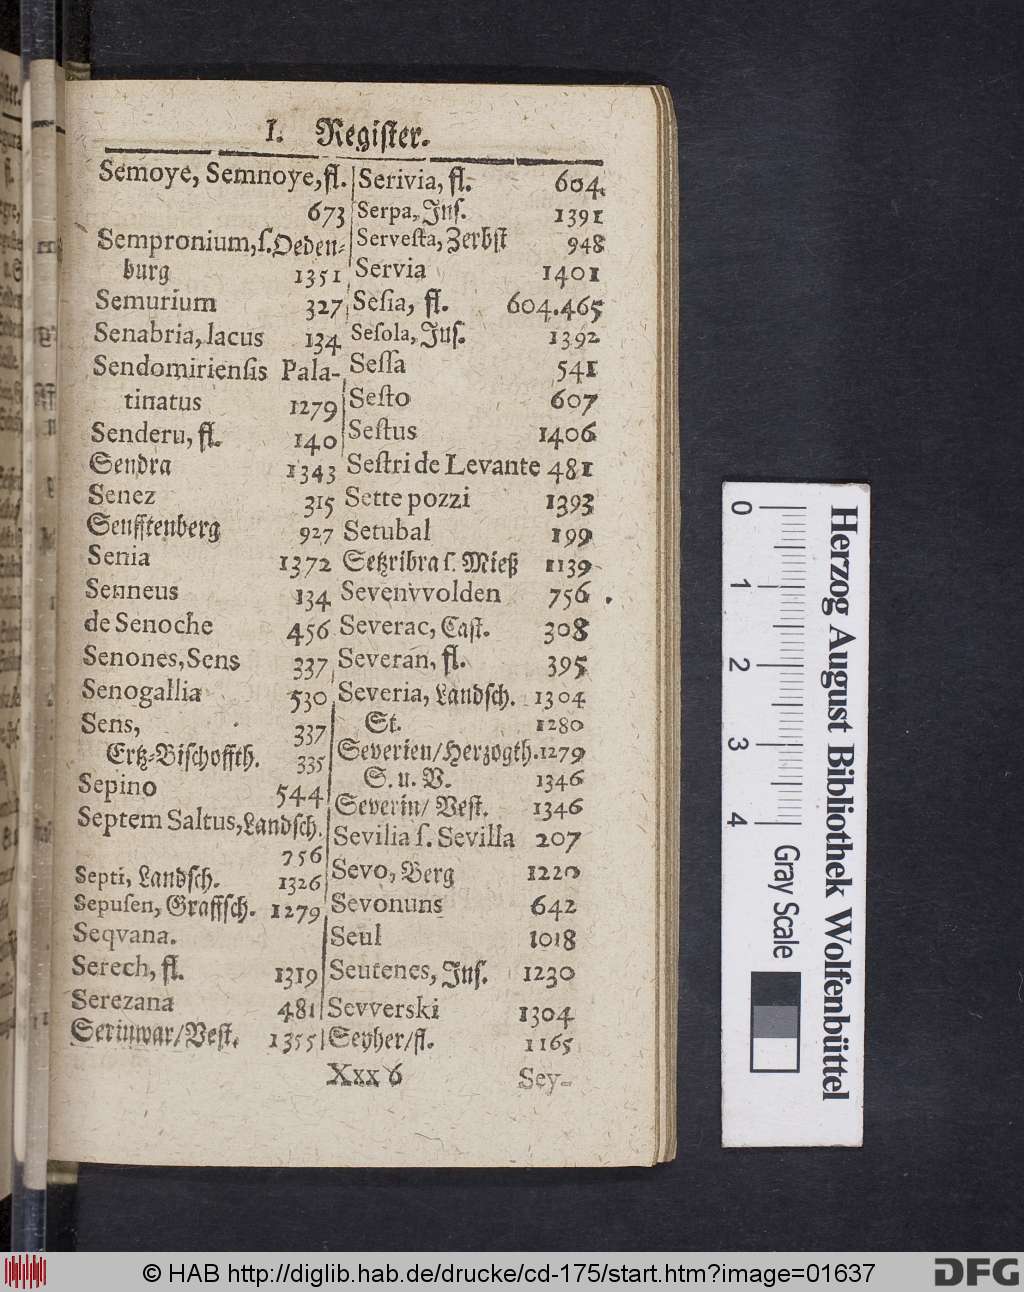 I. Register.
Semoye, Semnoye, fl.
673
Sempronium, s. Oeden-
burg 1351
Semurium 327
Senabria, lacus 134
Sendomiriensis Pala-
tinatus 1279
Senderu, fl. 140
Sendra 1343
Senez 315
Senfftenberg 927
Senia 1372
Senneus 134
de Senoche 456
Senones, Sens 337
Senogallia 530
Sens, 337
Ertz-Bischoffth. 335
Sepino 544
Septem Saltus, Landsch.
756
Septi, Landsch. 1326
Sepusen, Graffsch. 1279
Seqvana.
Serech, fl. 1319
Serezana 481
Serinwar/ Vest. 1355
Serivia, fl. 604.
Serpa, Ins. 1391
Servesta, Zerbst 948
Servia 1401
Sesia, fl. 604.465
Sesola, Ins. 1392
Sessa 541
Sesto 607
Sestus 1406
Sestri de Levante 481
Sette pozzi 1393
Setubal 199
Setzribra s. Mieß 1139
Sevenvvolden 756
Severac, Cast. 308
Severan, fl. 395
Severia, Landsch. 1304
St. 1280
Severien/ Herzogth. 1279
S. u. V. 1346
Severin/ Vest. 1346
Sevilia s. Sevilla 207
Sevo, Berg 1220
Sevonuns 642
Seul 1018
Seutenes, Ins. 1230
Sevverski 1304
Seyher/ fl. 1165
Xxx 6 Sey-
0 1 2 3 4
Gray Scale
Herzog August Bibliothek Wolfenbüttel
© HAB http://diglib.hab.de/drucke/cd-175/start.htm?image=01637
DFG